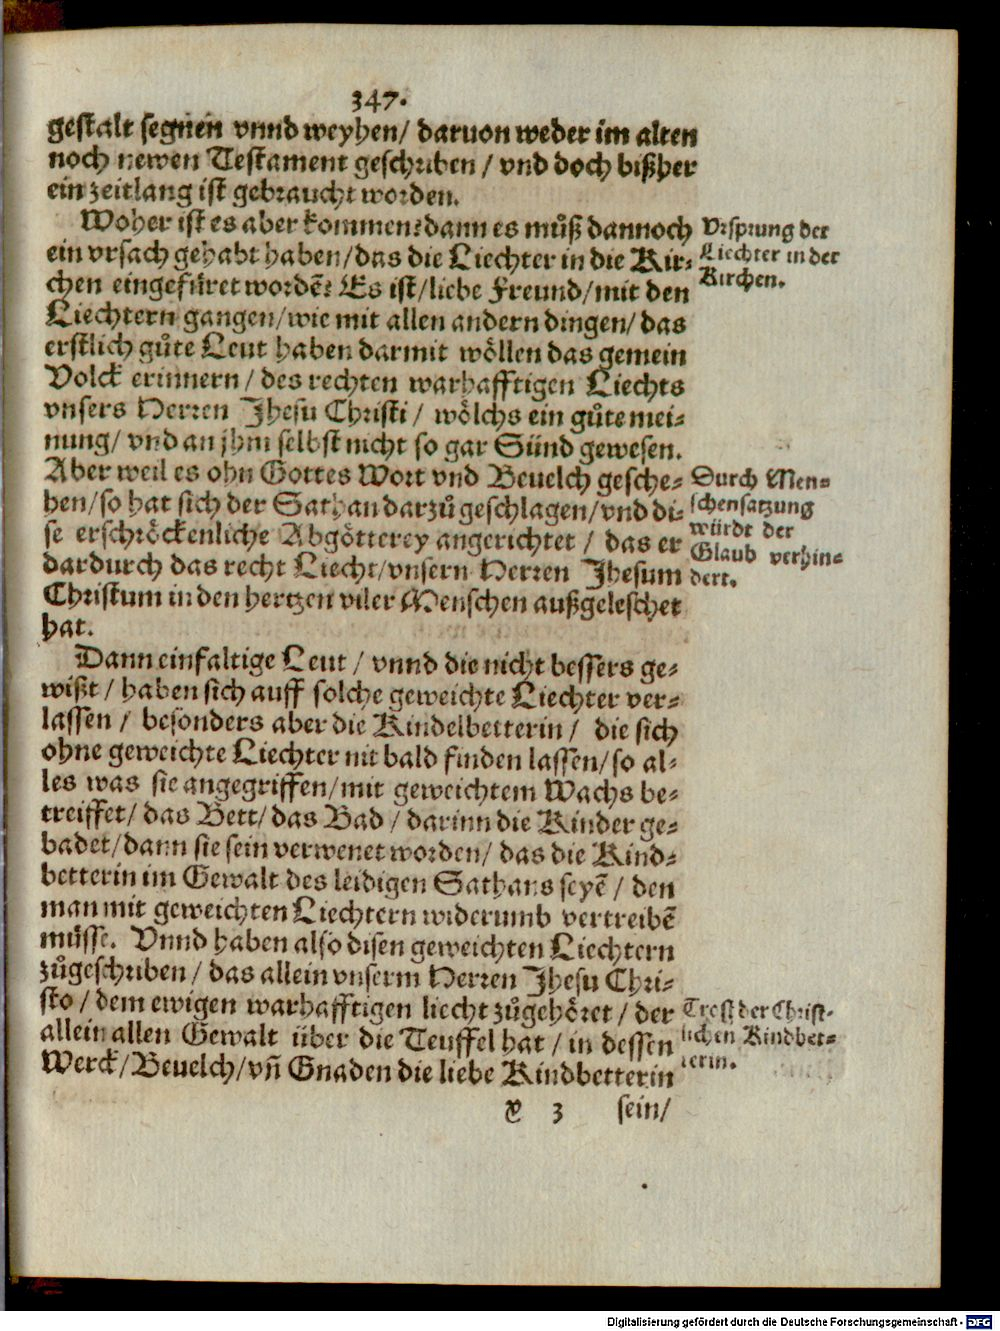 347.
gestalt segnen vnnd weyhen/ daruon weder im alten
noch newen Testament geschriben / vnd doch bißher
ein zeitlang ist gebraucht worden.
Woher ist es aber kommen? dann es můß dannoch
ein vrsach gehabt haben/das die Liechter in die Kir-
chen eingefüret wordẽ? Es ist/liebe Freund/mit den
Liechtern gangen/wie mit allen andern dingen/das
erstlich gůte Leut haben darmit wöllen das gemein
Volck erinnern / des rechten warhafftigen Liechts
vnsers Herren Jhesu Christi / wölchs ein gůte mei-
nung/ vnd an jhm selbst nicht so gar Sünd gewesen.
Aber weil es ohn Gottes Wort vnd Beuelch gesche-
hen/so hat sich der Sathan darzů geschlagen/vnd di-
se erschröckenliche Abgötterey angerichtet / das er
dardurch das recht Liecht/vnsern Herren Jhesum
Christum in den hertzen viler Menschen außgeleschet
hat.
Dann einfaltige Leut / vnnd die nicht bessers ge-
wißt / haben sich auff solche geweichte Liechter ver-
lassen / besonders aber die Kindelbetterin / die sich
ohne geweichte Liechter nit bald finden lassen/so al-
les was sie angegriffen/mit geweichtem Wachs be-
treiffet/das Bett/das Bad / darinn die Kinder ge-
badet/dann sie sein verwenet worden/ das die Kind-
betterin im Gewalt des leidigen Sathans seyẽ / den
man mit geweichten Liechtern widerumb vertreibẽ
müsse. Vnnd haben also disen geweichten Liechtern
zůgeschriben / das allein vnserm Herren Jhesu Chri-
sto / dem ewigen warhafftigen liecht zůgehöret / der
allein allen Gewalt über die Teuffel hat / in dessen
Werck/Beuelch/vñ Gnaden die liebe Kindbetterin
y 3 sein/
Vrsprung der
Liechter in der
Kirchen.
Durch Men-
schensatzung
würdt der
Glaub verhin-
dert.
Trost der Christ-
lichen Kindbet-
terin.
Digitalisierung gefördert durch die Deutsche Forschungsgemeinschaft - DFG